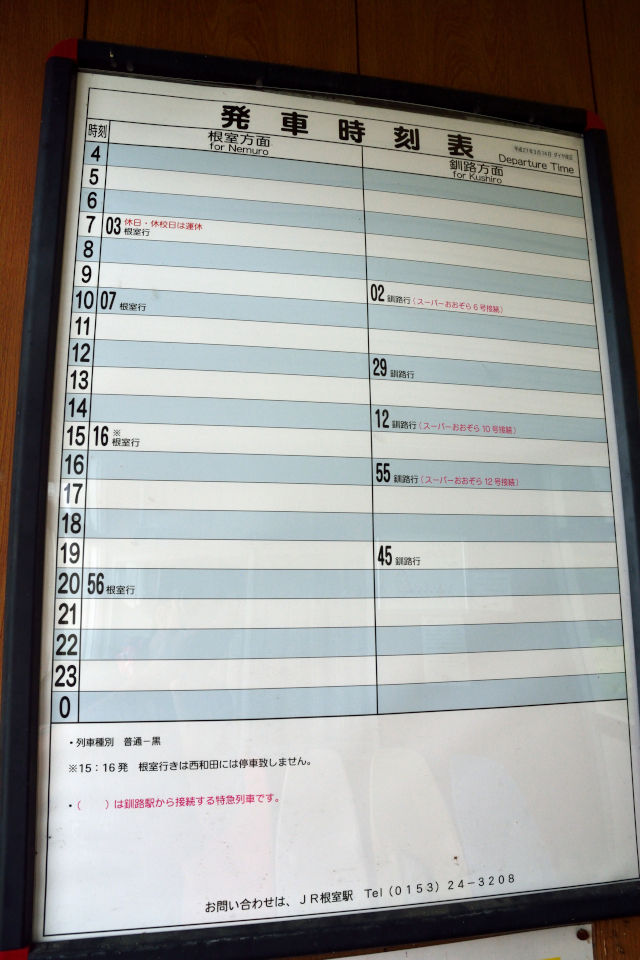 発車時刻表
平成21年3月14日 ダイヤ改正
Departure Time
時刻 根室方面 釧路方面
for Nemuro for Kushiro
4
5
6
7 03 休日・休校日は運休 根室行
8
9
10 07 根室行 02 釧路行(スーパーおおぞら6号接続)
11
12
13 29 釧路行
14
15 16 ※ 根室行 12 釧路行(スーパーおおぞら10号接続)
16
17 55 釧路行(スーパーおおぞら12号接続)
18
19
20 56 根室行 45 釧路行
21
22
23
0
・列車種別 普通－黒
※15：16発 根室行きは西和田には停車致しません。
・(　　)は釧路駅から接続する特急列車です。
お問い合わせは、JR根室駅 Tel(0153)24－3208